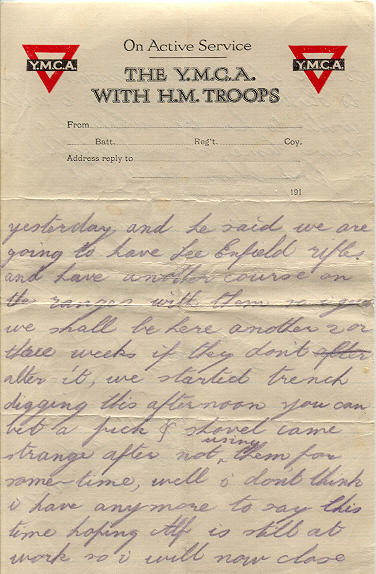 On Active Service
Y.M.C.A. Y.M.C.A.
THE Y.M.C.A.
WITH H.M. TROOPS
From
Batt. Reg't. Coy.
Address reply to
191
yesterday and he said we are
going to have Lee Enfield rifles
and have another course on
the ranges with them so i guess
we shall be here another 2 or
three weeks if they don't after
alter it, we started trench
digging this afternoon you can
bet a pick & shovel came
strange after not using them for
some-time, well i don't think
i have anymore to say this
time hoping Alf is still at
work so i will now close